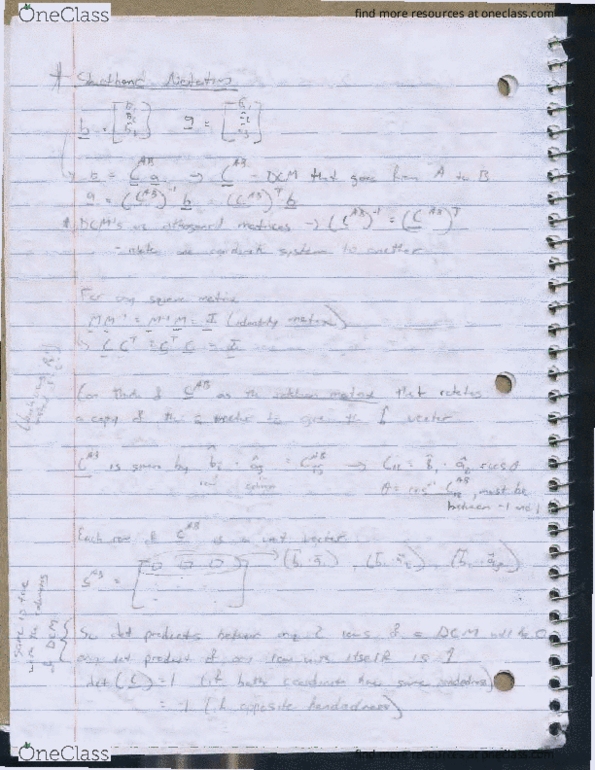 OneClass
find more resources at oneclass.com
* Shorthand Notation
b = [b̂₁ b̂₂ b̂₃] a = [â₁ â₂ â₃]
→ b = C^AB a → C^AB - DCM that goes from A to B
a = (C^AB)^-1 b = (C^AB)^T b
* DCM's are orthogonal matrices → (C^AB)^-1 = (C^AB)^T
- relate one coordinate system to another
For any square matrix
M M^-1 = M^-1 M = I (identity matrix)
→ C C^T = C^T C = I
Can think of C^AB as the rotation matrix that rotates
a copy of the a vector to give the b vector
C^AB is given by b̂ᵢ · âⱼ = Cᵢⱼ^AB → C₁₂ = b̂₁ · â₂ = cos θ
row column
θ = cos^-1 C₁₂^AB, must be
between -1 and 1
Each row of C^AB is a unit vector
C^AB = [ ] → (b̂₁ · â₁), (b̂₁ · â₂), (b̂₁ · â₃)
same is true
with the columns
of DCM
So dot products between any 2 rows of a DCM will be 0
any dot product of any row with itself is 1
det (C) = 1 (if both coordinates have same handedness)
= 1 (if opposite handedness)
OneClass
find more resources at oneclass.com